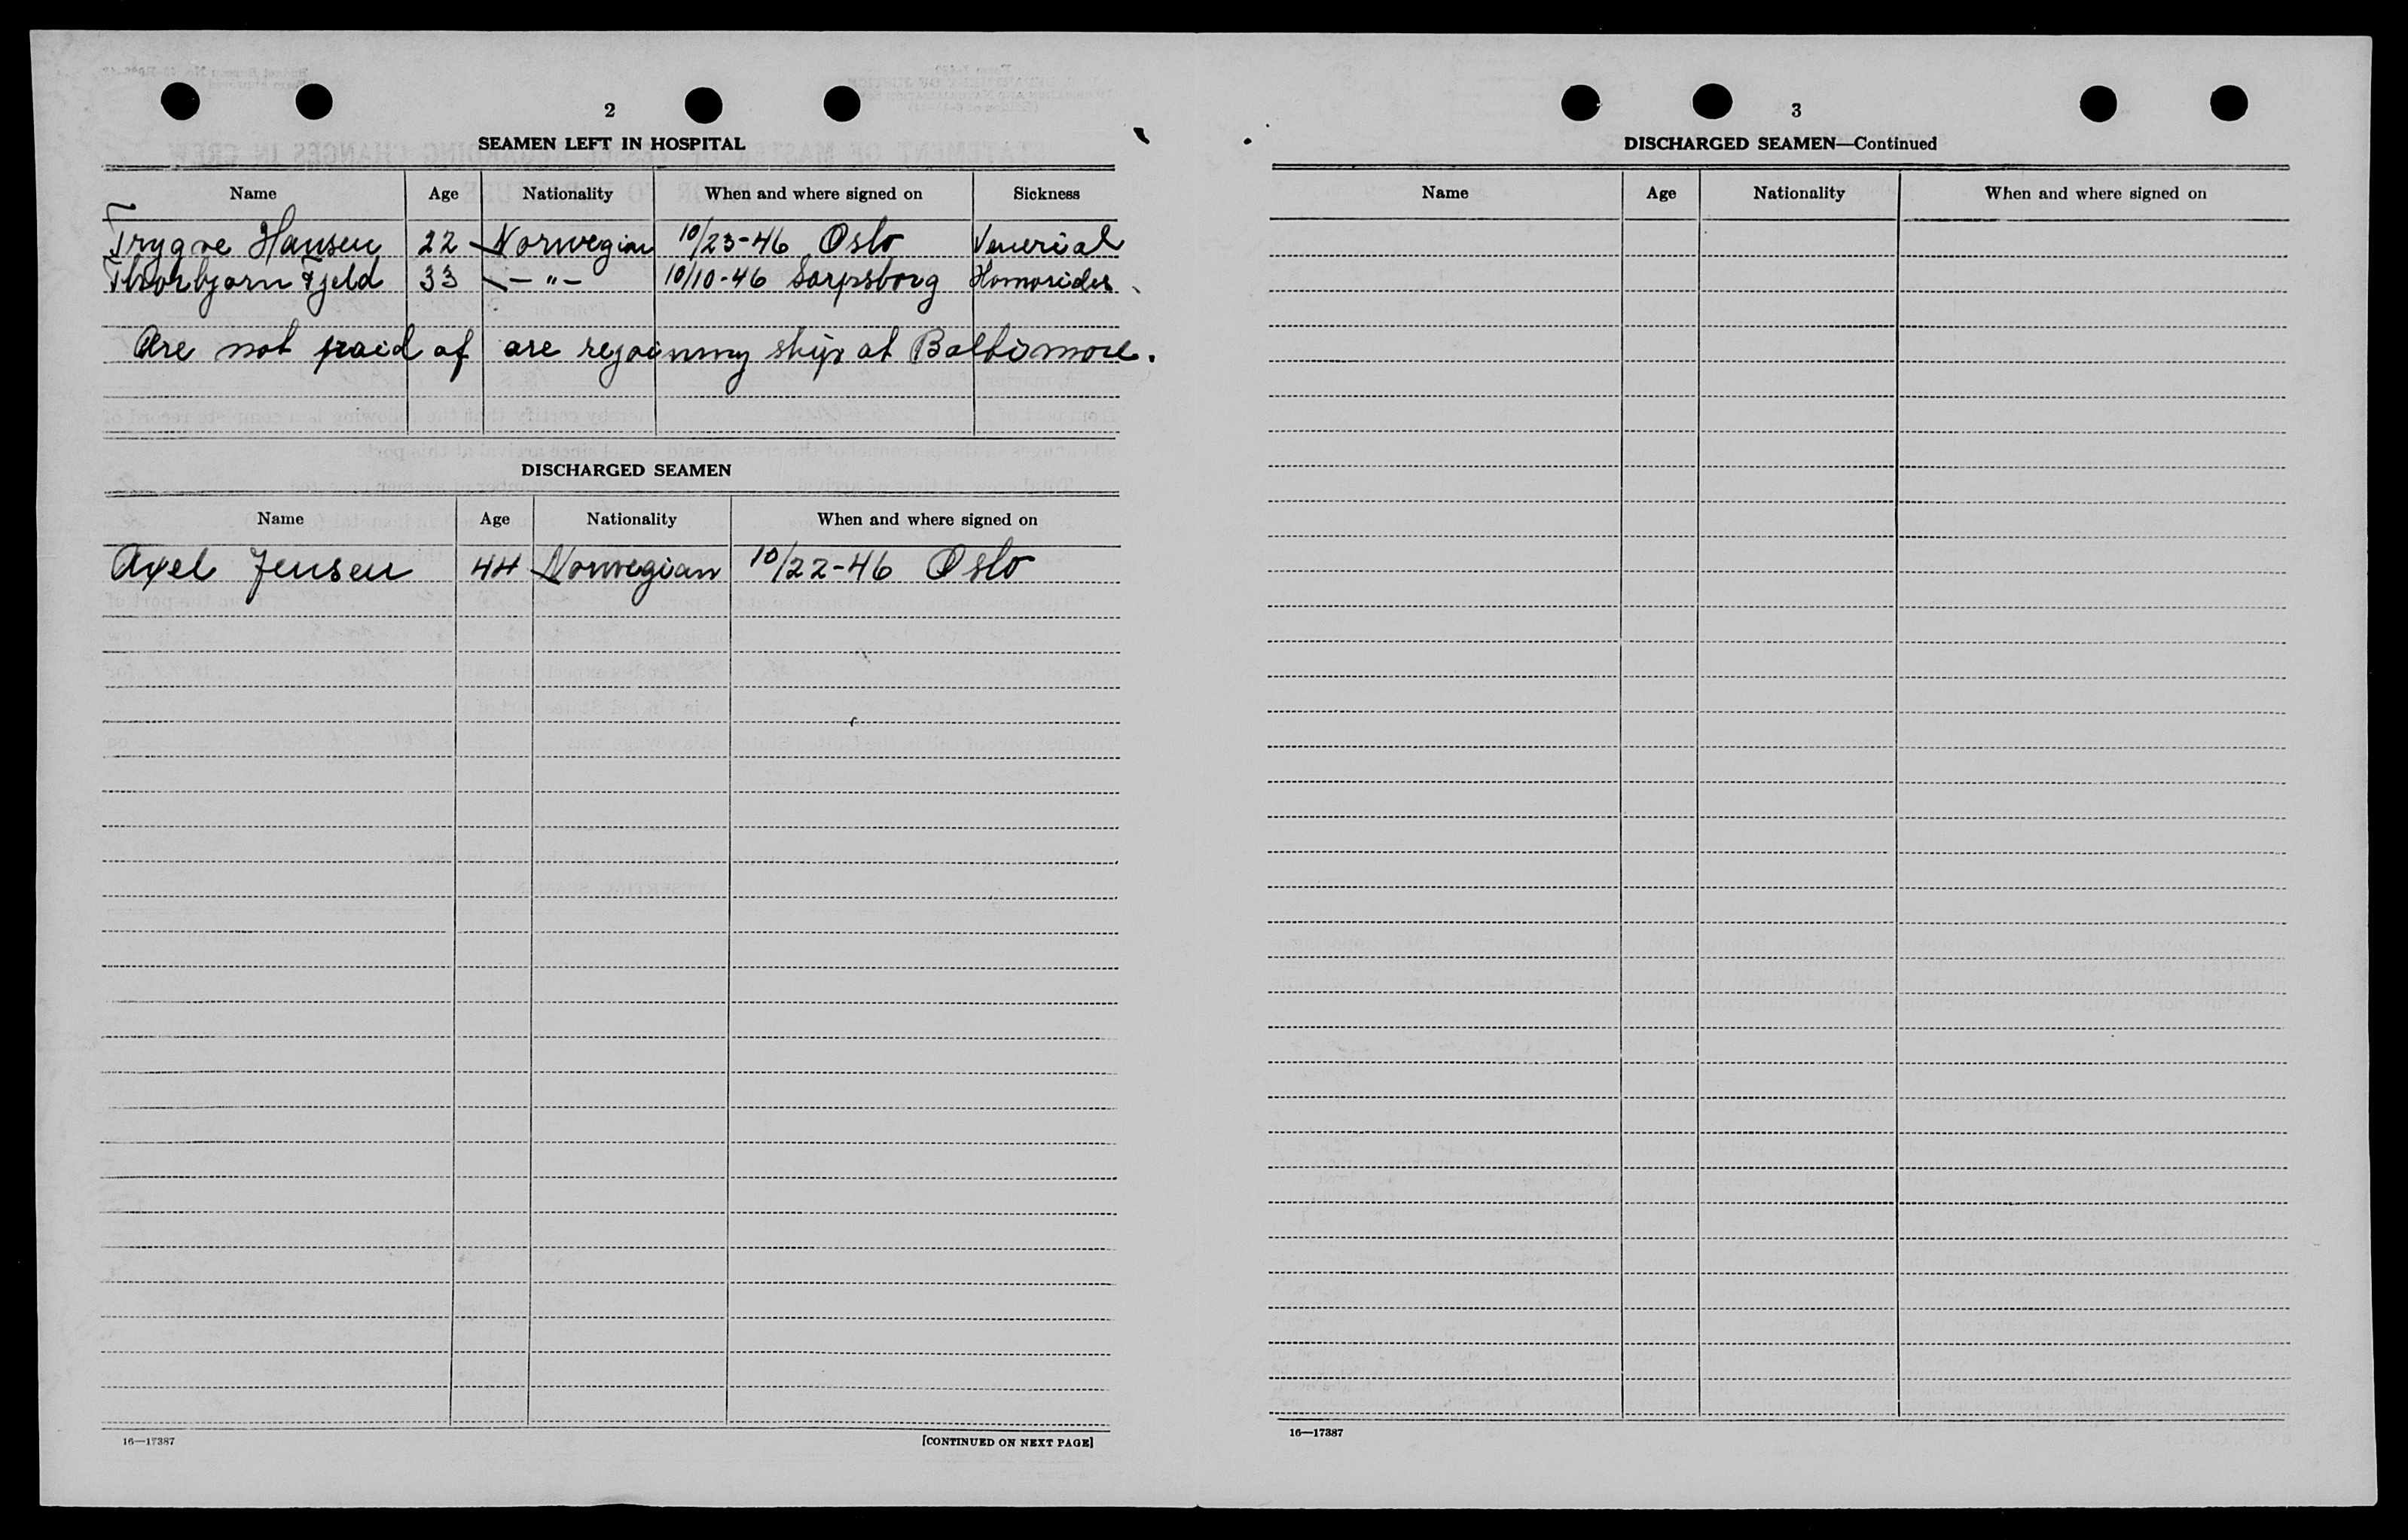 2
SEAMEN LEFT IN HOSPITAL
Name Age Nationality When and where signed on Sickness
Trygve Hansen 22 Norwegian 10/23-46 Oslo Venerial
Thorbjørn Fjeld 33 -"- 10/10-46 Sarpsborg Homorides
Are not paid of are rejoining ship at Baltimore.
DISCHARGED SEAMEN
Name Age Nationality When and where signed on
Axel Jensen 44 Norwegian 10/22-46 Oslo
16—17387 [CONTINUED ON NEXT PAGE]
3
DISCHARGED SEAMEN—Continued
Name Age Nationality When and where signed on
16—17387